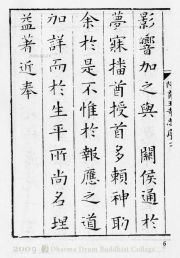 影響加之與　關侯通於
夢寐擋酋授首多賴神助
余於是不惟於報應之道
加詳而於生平所尚名理
益著近奉
2009 Dharma Drum Buddhist College
6